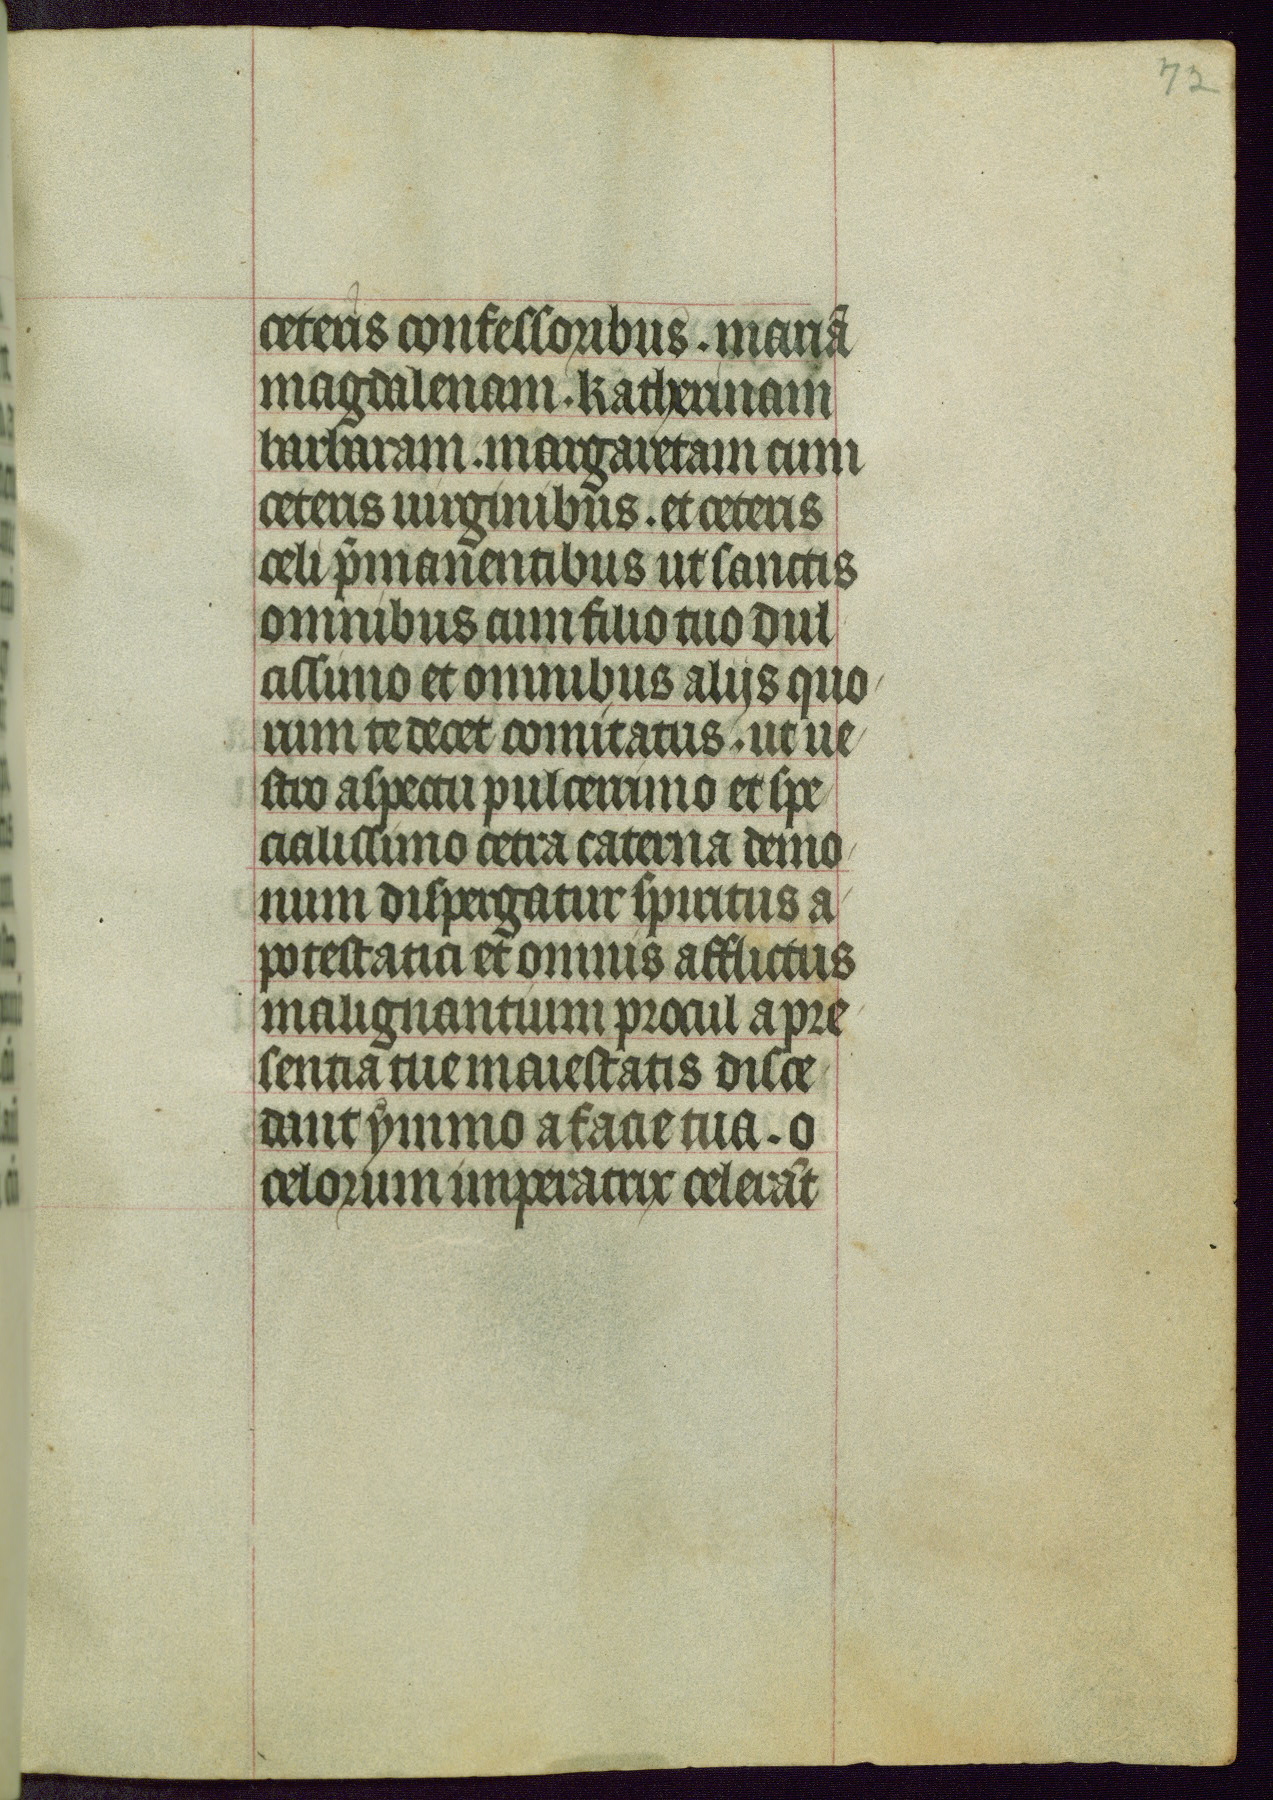 72
ceteris confessoribus . mariā
magdalenam . katherinam
barbaram . margaretam cum
ceteris uirginibus . et ceteris
celi p̄manentibus ut sanctis
omnibus cum filio tuo dul
cissimo et omnibus alijs quo/
rum te decet comitatus . ut ue/
stro aspectu pulcerrimo et spe/
cialissimo cetra caterna demo/
num dispergatur spiritus a/
potestatici et omnis afflictus
malignantium procul a pre/
sentia tue maiestatis disce/
dant ymmo a facie tua . o
celorum imperatrix celerāt